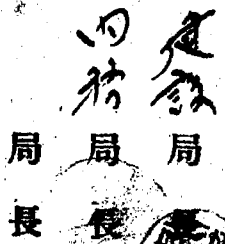 建設局長
内務局長
局長